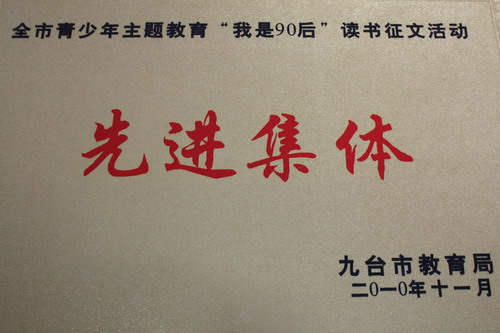 全市青少年主题教育“我是90后”读书征文活动
先进集体
九台市教育局
二0一0年十一月